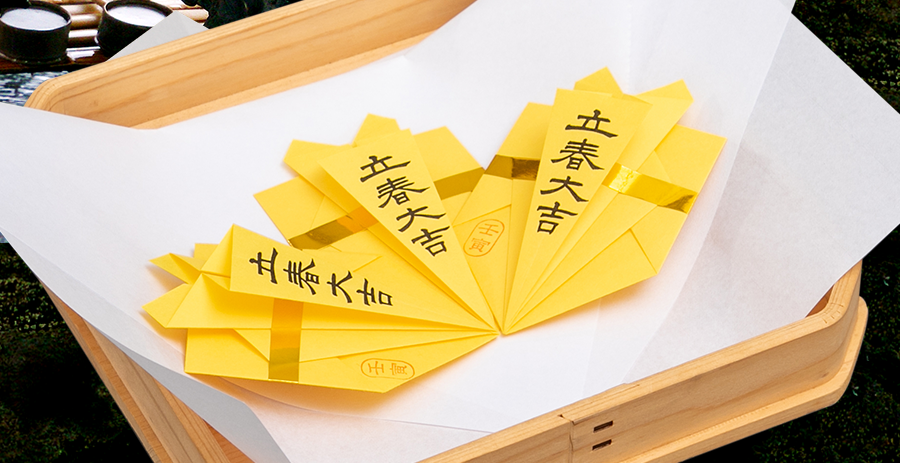 立春大吉
立春大吉
立春大吉
壬寅
壬寅